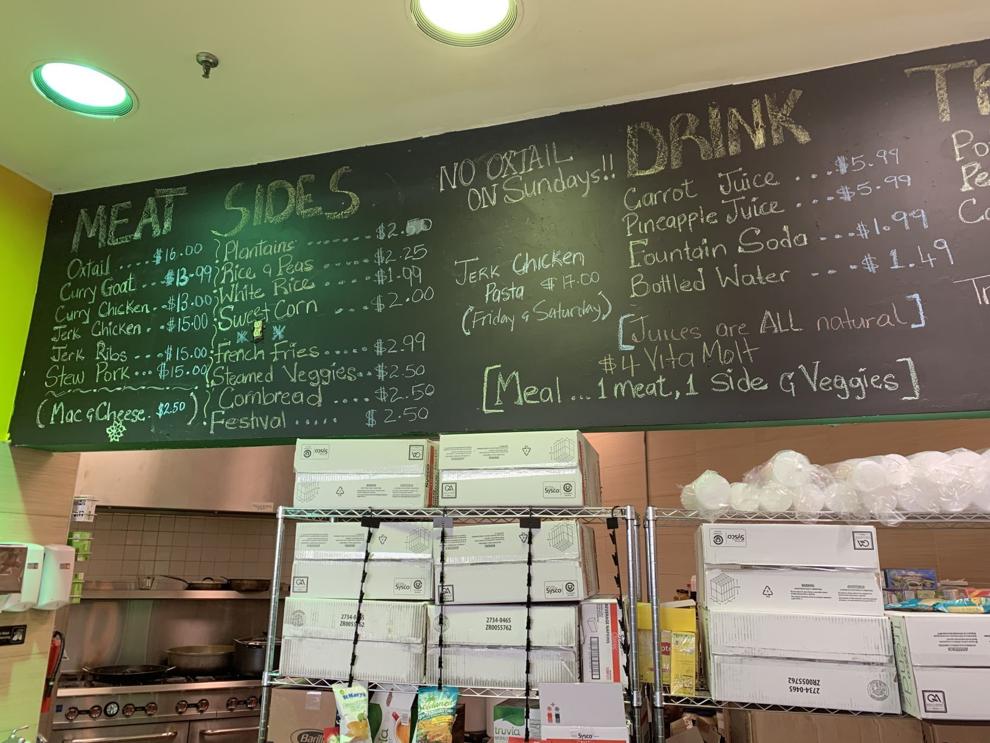 MEAT
Oxtail .... $16.00
Curry Goat .... $13.99
Curry Chicken .. $13.00
Jerk Chicken . $15.00
Jerk Ribs ... $15.00
Stew Pork ... $15.00
(Mac & Cheese. $2.50)
SIDES
Plantains ........ $2.
Rice & Peas ...... $2.25
White Rice ..... $1.99
Sweet Corn .. $2.00
French Fries ..... $2.99
Steamed Veggies.. $2.50
Cornbread .... $2.50
Festival ..... $2.50
NO OXTAIL
ON Sundays!!
JERK Chicken
Pasta $17.00
(Friday & Saturday)
DRINK
Carrot Juice ... $5.99
Pineapple Juice .... $5.99
Fountain Soda ... $1.99
Bottled Water ... $1.49
[Juices are ALL natural]
$4 Vita Malt
[Meal ... 1 meat, 1 side & Veggies]
Sysco
Sysco
Sysco
Sysco
2734-0465
ZR0055762
2734-0465
ZR0055762
2734-0465
ZR0055762
truvia
Sysco